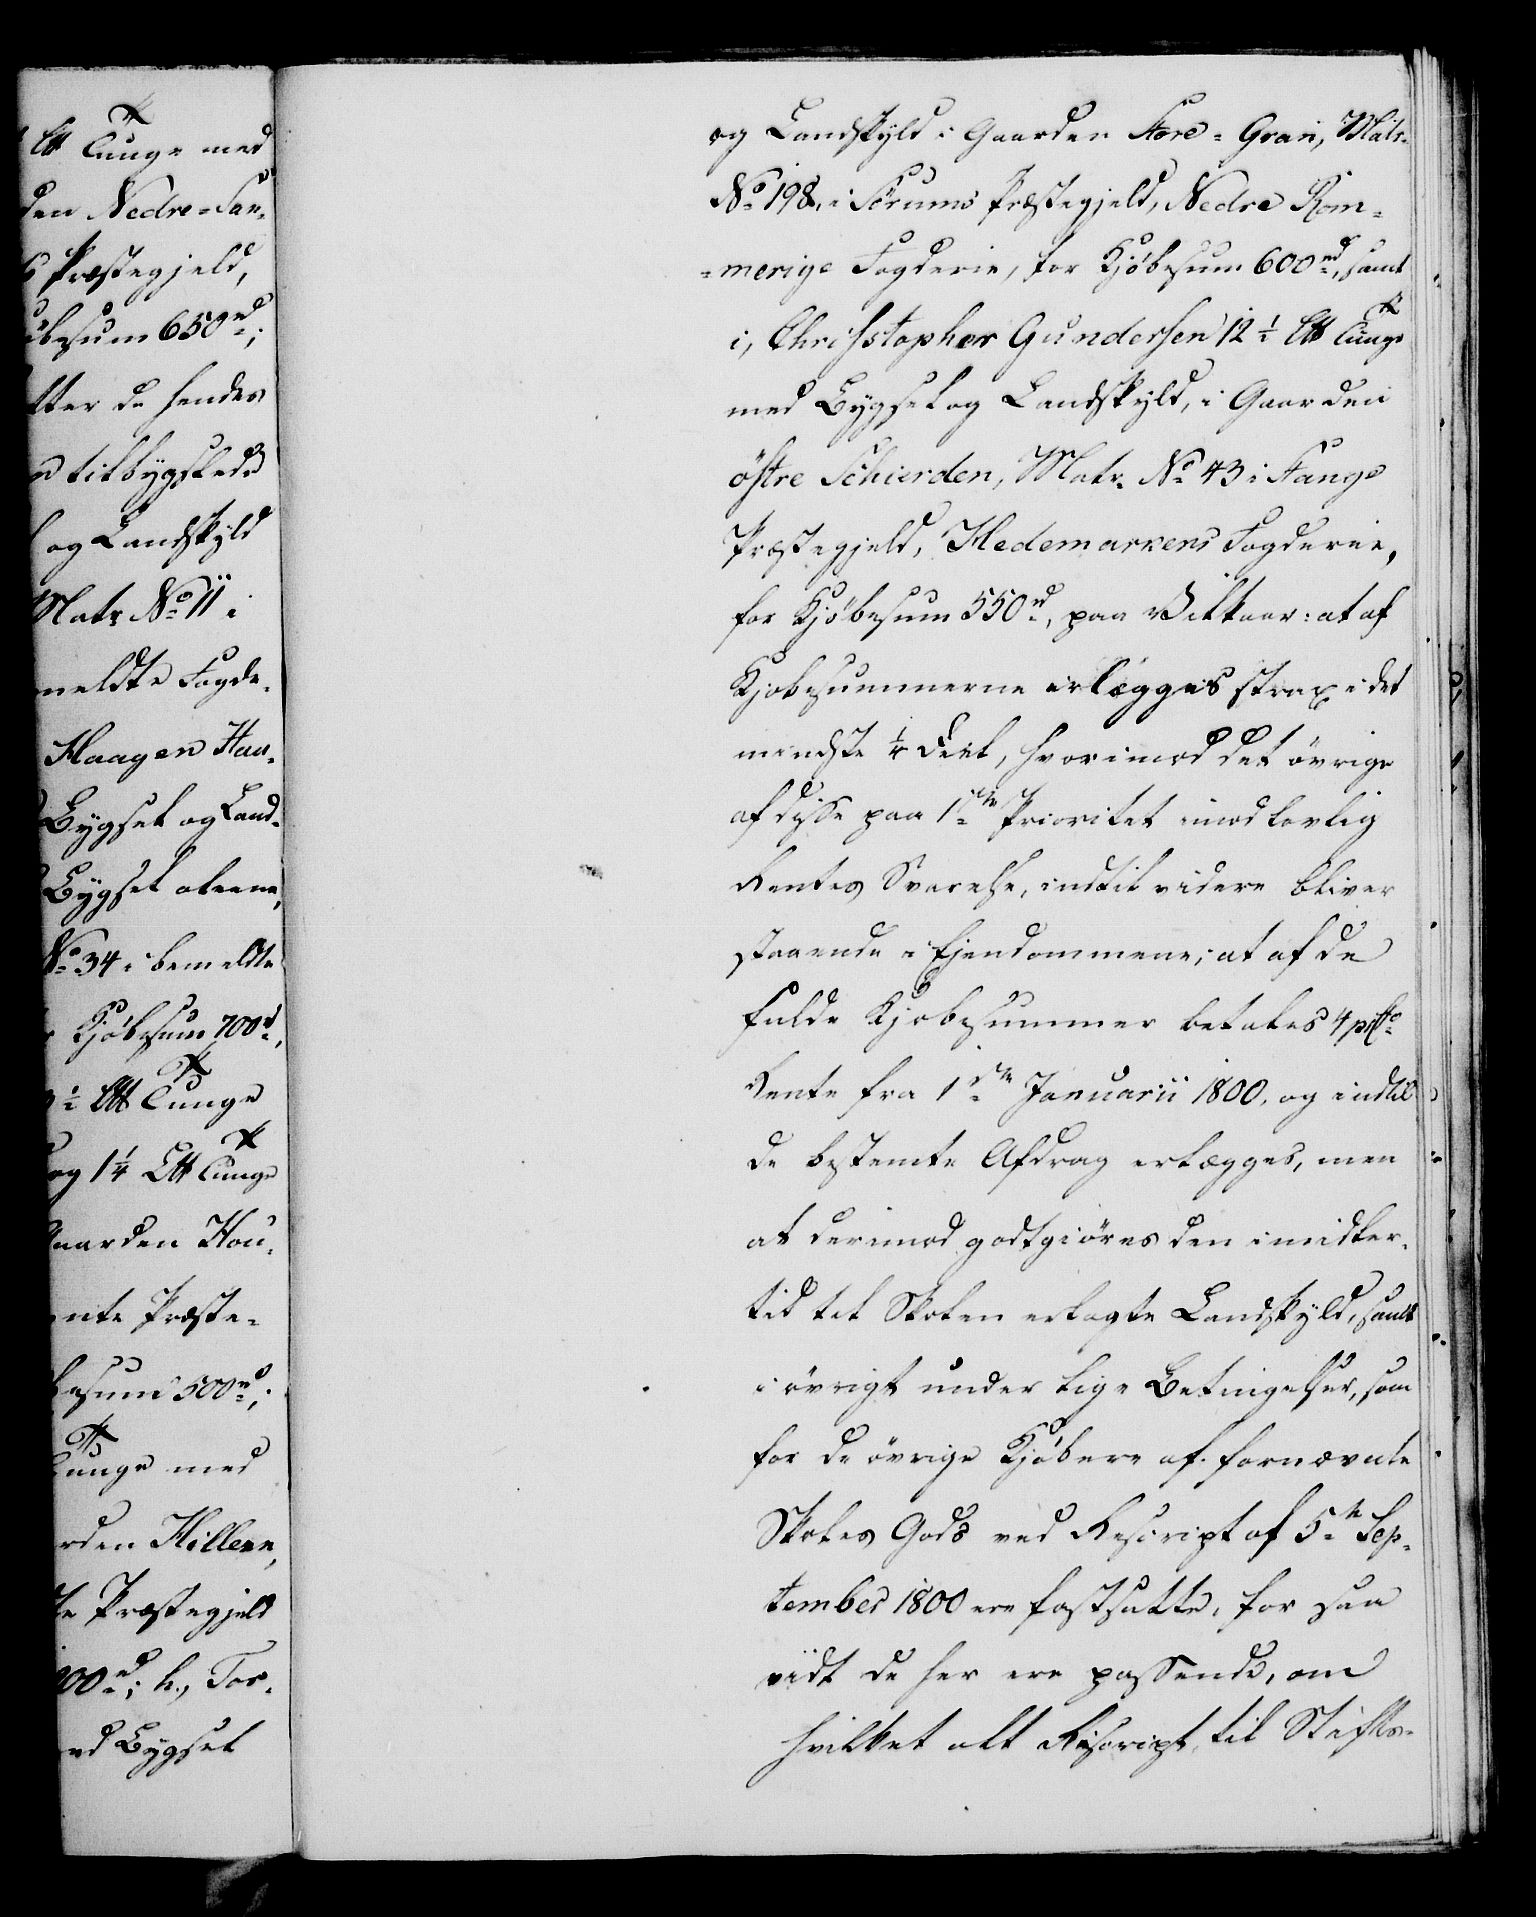 Tunge med
den Nedre=San-
Præstegjeld,
øbesum 650 rd;
tter de hendes
tilbygslede
og Landskyld
Matr No 11 i
meldte Fogde-
Haagen Han-
Bygsel og Land-
Bygsel alene,
No 34 i bemeldte
Kjöbesum 700 rd,
½ Tunge
og 1¼ Tunge
Gaarden Hou-
nte Præste-
besum 500 rd;
Tunge med
rden Hillern,
te Præstegjeld
00 rd; h., Tor-
ed Bygsel
og Landskyld i Gaarden Store=Gran, Matr.
No 198, i Sörums Præstegjeld, Nedre Rom=
=merige Fogderie, for Kjöbesum 600 rd, samt
i, Christopher Gundersen 12½ Tunge
med Bygsel og Landskyld, i Gaarden
östre Schierden, Matr. No 43 i Stange
Præstegjeld, Hedemarkens Fogderie,
for Kjöbesum 550 rd, paa Vilkaar: at af
Kjöbesummerne erlægges strax i det
mindste ¼ Deel, hvorimod det övrige
af disse paa 1ste Prioritet imod lovlig
Rentes Svarelse, indtil videre bliver
staaende i Ejendommene; at af de
fulde Kjöbesummer betales 4 prCto
Rente fra 1ste Januarii 1800, og indtil
de bestemte Afdrag erlægges, men
at derimod godtgiöres den imidler-
tid til Skolen erlagte Landskyld, samt
i övrigt under lige Betingelser, som
for de övrige Kjöbere af fornævnte
Skoles Gods ved Rescript af 5te Sep-
tember 1800 ere fastsatte, for saa
vidt de her ere passende, om
hvilket alt Rescript, til Stifts-